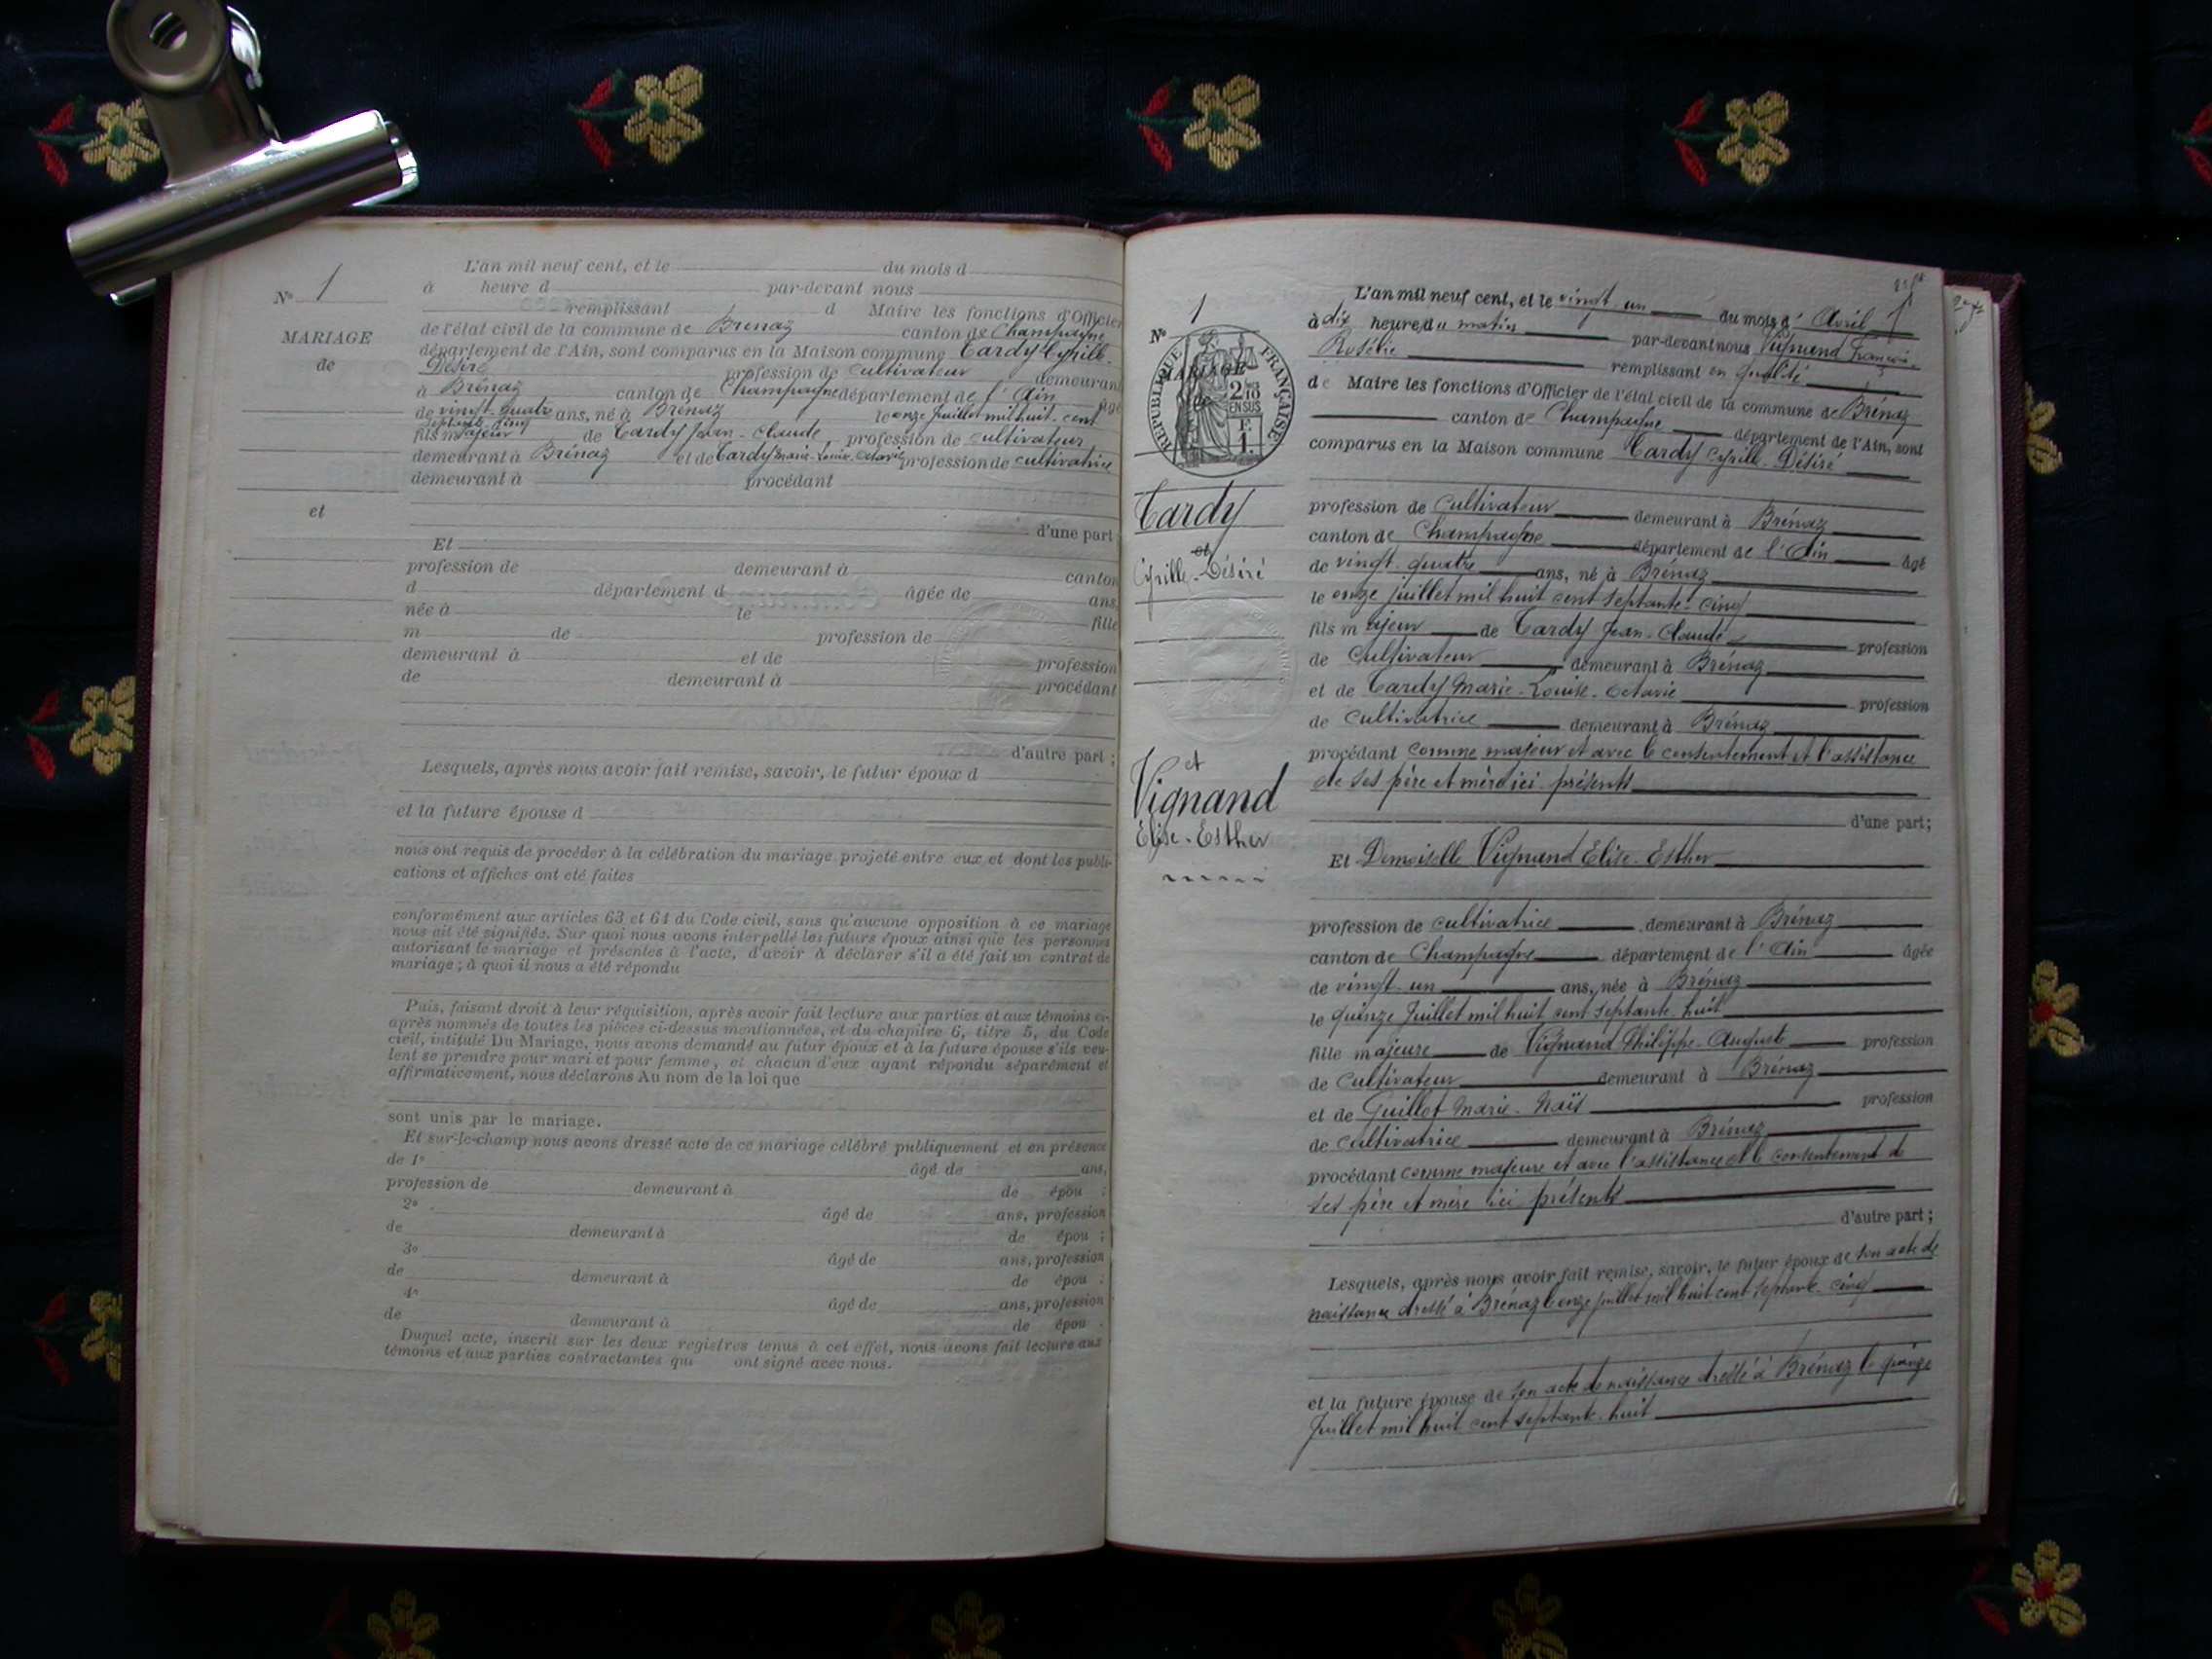 L'an mil neuf cent, et le du mois d
N° 1
à heure d par-devant nous
remplissant d Maire les fonctions d'Officier
de l'état civil de la commune de Brénaz canton de Champagne
MARIAGE
département de l'Ain, sont comparus en la Maison commune Tardy Cyrille-
de
Désiré profession de cultivateur demeurant
à Brénaz canton de Champagne département de l'Ain âgé
de vingt-quatre ans, né à Brénaz le onze Juillet mil huit-cent
septante-cinq
fils majeur de Tardy Jean-Claude, profession de cultivateur
demeurant à Brénaz et de Tardy Marie-Louise-Octavie profession de cultivatrice
demeurant à procédant
et
d'une part
Et
profession de demeurant à canton
d département d âgée de ans,
née à le fille
m de profession de
demeurant à et de profession
de demeurant à procédant
d'autre part ;
Lesquels, après nous avoir fait remise, savoir, le futur époux d
et la future épouse d
nous ont requis de procéder à la célébration du mariage projeté entre eux et dont les publi-
cations et affiches ont été faites
conformément aux articles 63 et 64 du Code civil, sans qu'aucune opposition à ce mariage
nous ait été signifiée. Sur quoi nous avons interpellé les futurs époux ainsi que les personnes
autorisant le mariage et présentes à l'acte, d'avoir à déclarer s'il a été fait un contrat de
mariage ; à quoi il nous a été répondu
Puis, faisant droit à leur réquisition, après avoir fait lecture aux parties et aux témoins ci-
après nommés de toutes les pièces ci-dessus mentionnées, et du chapitre 6, titre 5, du Code
civil, intitulé Du Mariage, nous avons demandé au futur époux et à la future épouse s'ils veu-
lent se prendre pour mari et pour femme, et chacun d'eux ayant répondu séparément et
affirmativement, nous déclarons Au nom de la loi que
sont unis par le mariage.
Et sur-le-champ nous avons dressé acte de ce mariage célébré publiquement et en présence
de 1° âgé de ans,
profession de demeurant à de épou ;
2° âgé de ans, profession
de demeurant à de épou ;
3° âgé de ans, profession
de demeurant à de épou ;
4° âgé de ans, profession
de demeurant à de épou .
Duquel acte, inscrit sur les deux registres tenus à cet effet, nous avons fait lecture aux
témoins et aux parties contractantes qui ont signé avec nous.
N° 1
MARIAGE
de
RÉPUBLIQUE FRANÇAISE
2/10
EN SUS
F.
1.
Tardy
et
Cyrille-Désiré
et
Vignand
Elise-Esther
L'an mil neuf cent, et le vingt un du mois d'Avril
à dix heure du matin par-devant nous Vignand François-
Rosélie remplissant en qualité
de Maire les fonctions d'Officier de l'état civil de la commune de Brénaz
canton de Champagne département de l'Ain, sont
comparus en la Maison commune Tardy Cyrille-Désiré
profession de Cultivateur demeurant à Brénaz
canton de Champagne département de l'Ain âgé
de vingt-quatre ans, né à Brénaz
le onze Juillet mil huit cent septante-cinq
fils majeur de Tardy Jean-Claude profession
de Cultivateur demeurant à Brénaz
et de Tardy Marie-Louise-Octavie profession
de Cultivatrice demeurant à Brénaz
procédant comme majeur et avec le consentement et l'assistance
de ses père et mère ici présents
d'une part;
Et Demoiselle Vignand Elise-Esther
profession de cultivatrice demeurant à Brénaz
canton de Champagne département de l'Ain âgée
de vingt-un ans, née à Brénaz
le quinze Juillet mil huit cent septante-huit
fille majeure de Vignand Philippe-Auguste profession
de Cultivateur demeurant à Brénaz
et de Guillot Marie-Naïs profession
de cultivatrice demeurant à Brénaz
procédant comme majeure et avec l'assistance et le consentement de
ses père et mère ici présents
d'autre part ;
Lesquels, après nous avoir fait remise, savoir, le futur époux de son acte de
naissance dressé à Brénaz le onze juillet mil huit cent septante-cinq
et la future épouse de son acte de naissance dressé à Brénaz le quinze
Juillet mil huit cent septante-huit